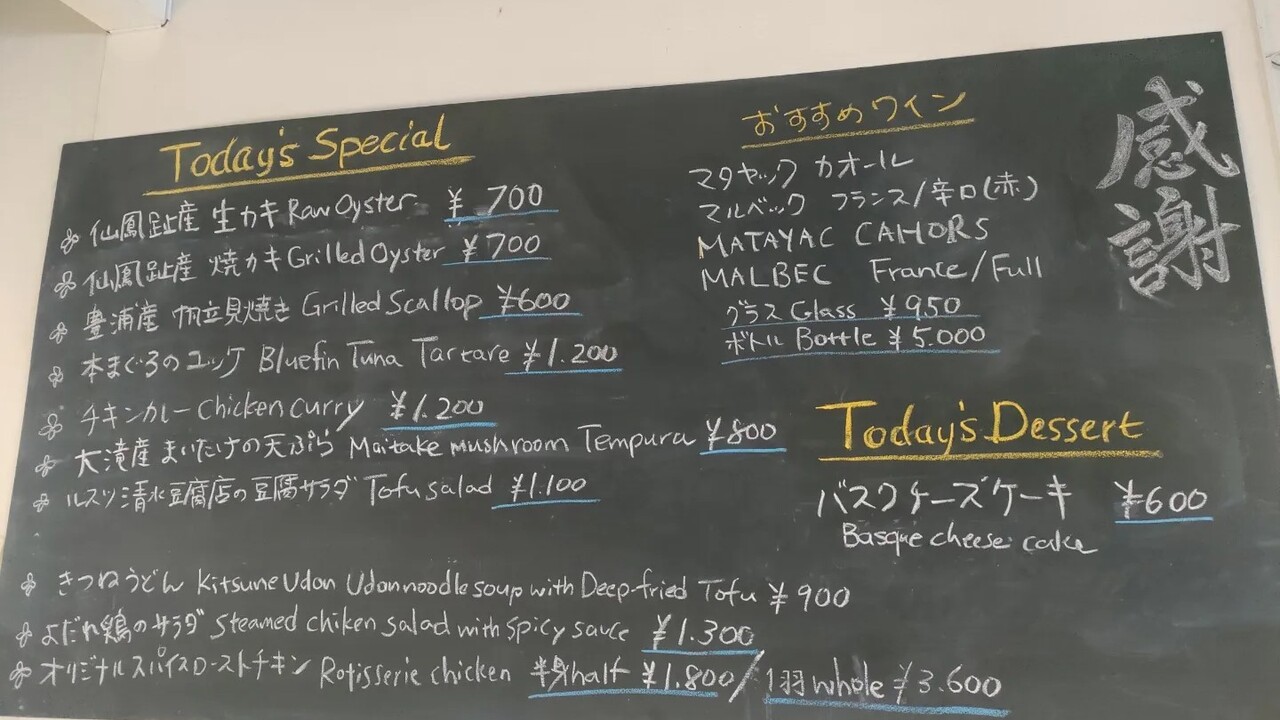 Today's Special
仙鳳趾産 生カキ Raw Oyster ¥700
仙鳳趾産 焼カキ Grilled Oyster ¥700
豊浦産 帆立貝焼き Grilled Scallop ¥600
本まぐろのユッケ Bluefin Tuna Tartare ¥1.200
チキンカレー Chicken Curry ¥1.200
大滝産 まいたけの天ぷら Maitake mushroom Tempura ¥800
ルスツ清水豆腐店の豆腐サラダ Tofu Salad ¥1.100
きつねうどん Kitsune Udon Udon noodle soup with Deep-fried Tofu ¥900
よだれ鶏のサラダ Steamed chiken salad with spicy sauce ¥1.300
オリジナルスパイスローストチキン Rotisserie chicken 半身half ¥1.800/1羽whole ¥3.600
おすすめワイン
マタヤック カオール
マルベック フランス/辛口(赤)
MATAYAC CAHORS
MALBEC France/Full
グラス Glass ¥950
ボトル Bottle ¥5.000
Today's Dessert
バスクチーズケーキ ¥600
Basque cheese cake
感謝